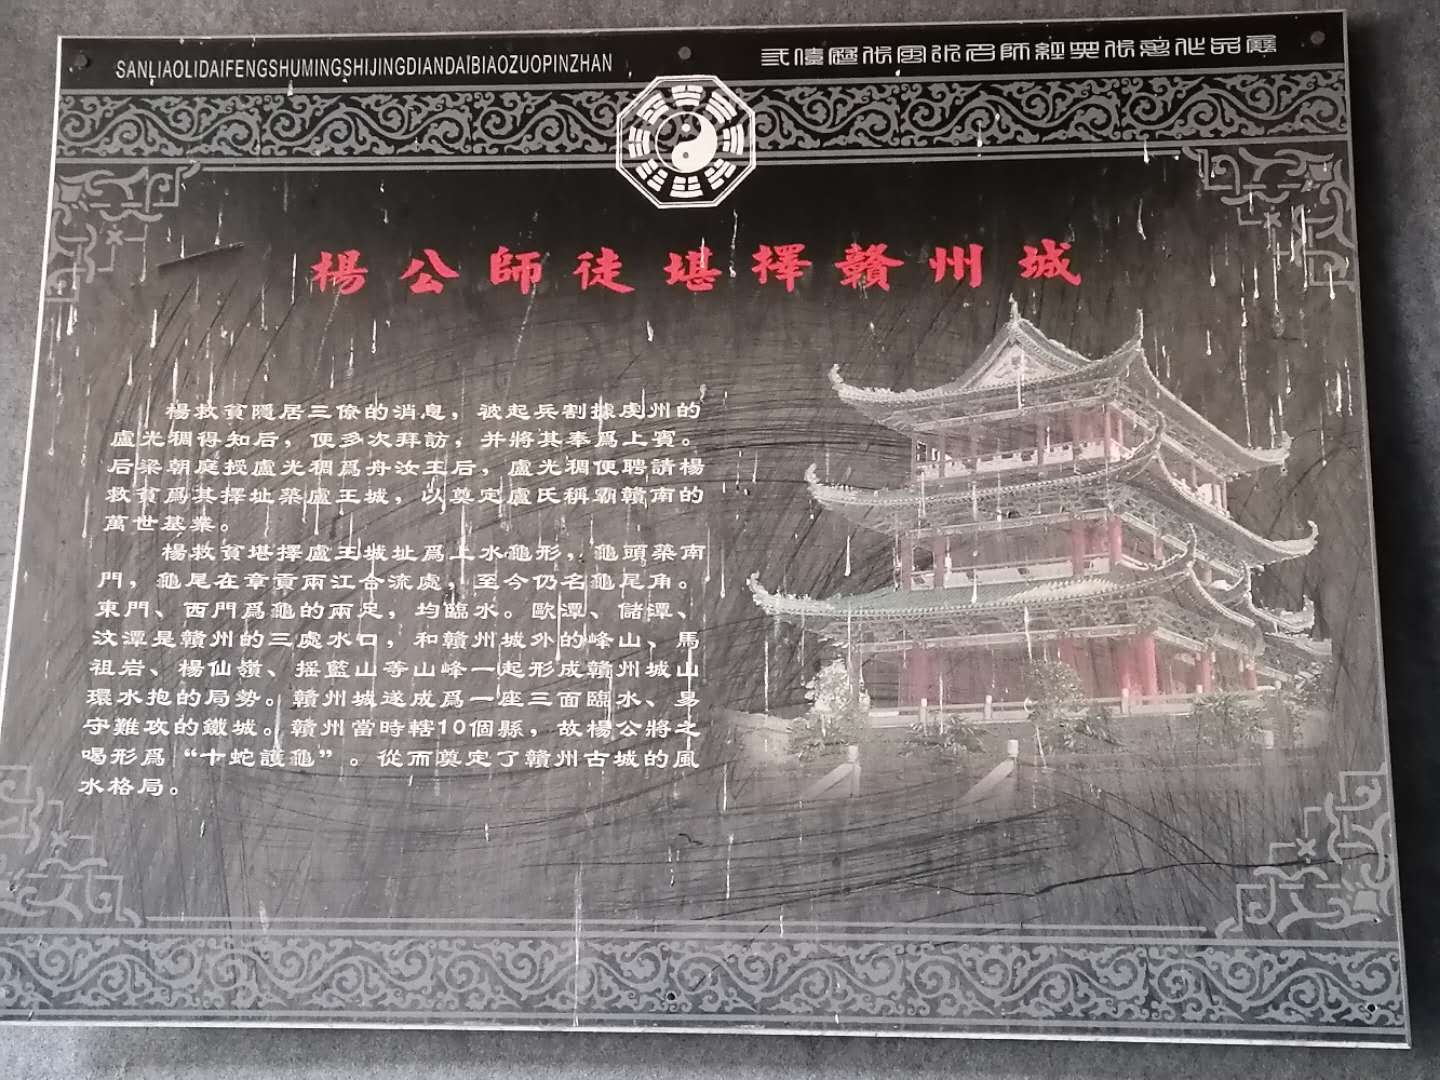 SANLIAOLIDAIFENGSHUMINGSHIJINGDIANDAIBIAOZUOPINZHAN
三僚歷代風水名師經典代表作品展
楊公師徒堪擇贛州城
楊救貧隱居三僚的消息，被起兵割據虔州的
盧光稠得知后，便多次拜訪，并將其奉爲上賓。
后梁朝庭授盧光稠爲舟汝王后，盧光稠便聘請楊
救貧爲其擇址築盧王城，以奠定盧氏稱霸贛南的
萬世基業。
楊救貧堪擇盧王城址爲上水龜形，龜頭築南
門，龜尾在章貢兩江合流處，至今仍名龜尾角。
東門、西門爲龜的兩足，均臨水。歐潭、儲潭、
汶潭是贛州的三處水口，和贛州城外的峰山、馬
祖岩、楊仙嶺、摇藍山等山峰一起形成贛州城山
環水抱的局勢。贛州城遂成爲一座三面臨水、易
守難攻的鐵城。贛州當時轄10個縣，故楊公將之
喝形爲“十蛇護龜”。從而奠定了贛州古城的風
水格局。